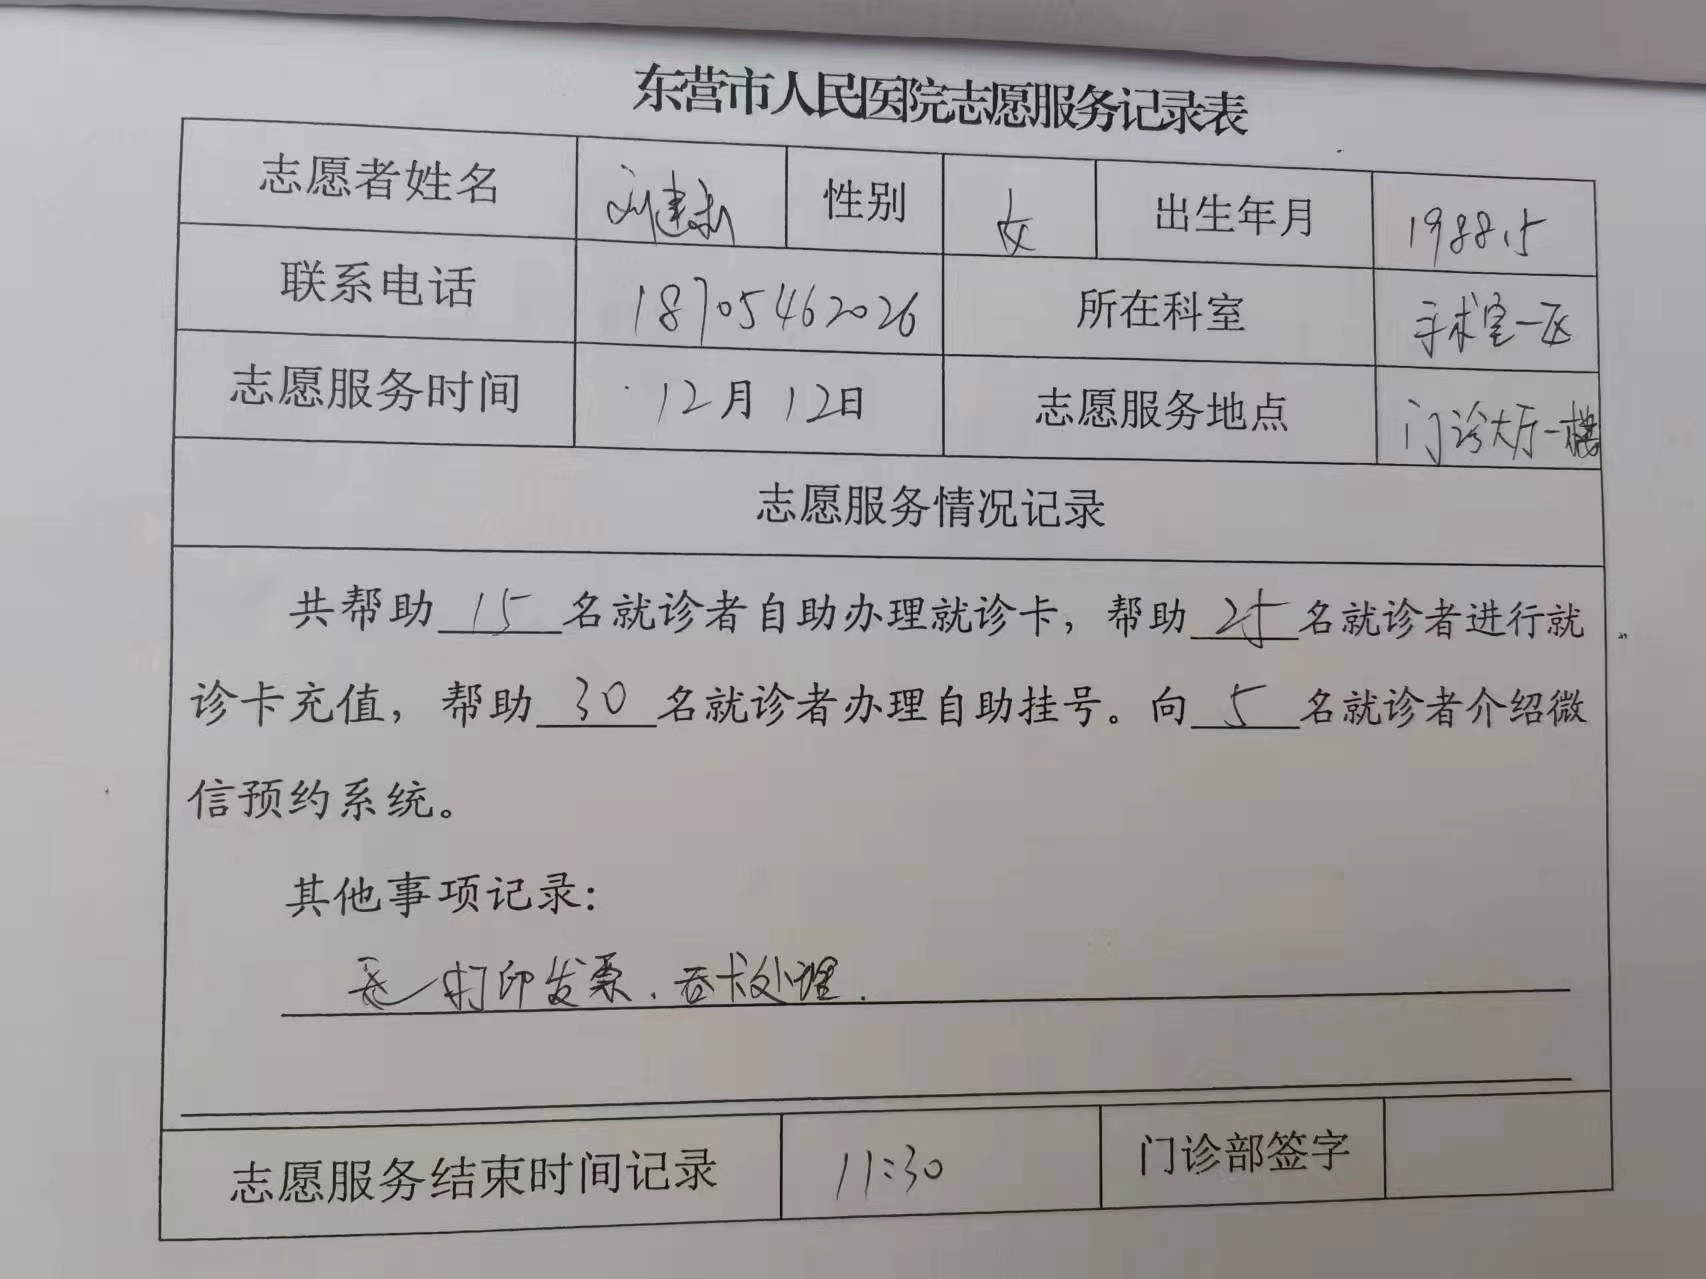 东营市人民医院志愿服务记录表
志愿者姓名 刘建 性别 女 出生年月 1988.5
联系电话 18705462026 所在科室 手术室一区
志愿服务时间 12月12日 志愿服务地点 门诊大厅一楼
志愿服务情况记录
共帮助15名就诊者自助办理就诊卡，帮助25名就诊者进行就
诊卡充值，帮助30名就诊者办理自助挂号。向5名就诊者介绍微
信预约系统。
其他事项记录：
打印发票、吞卡处理.
志愿服务结束时间记录 11:30 门诊部签字